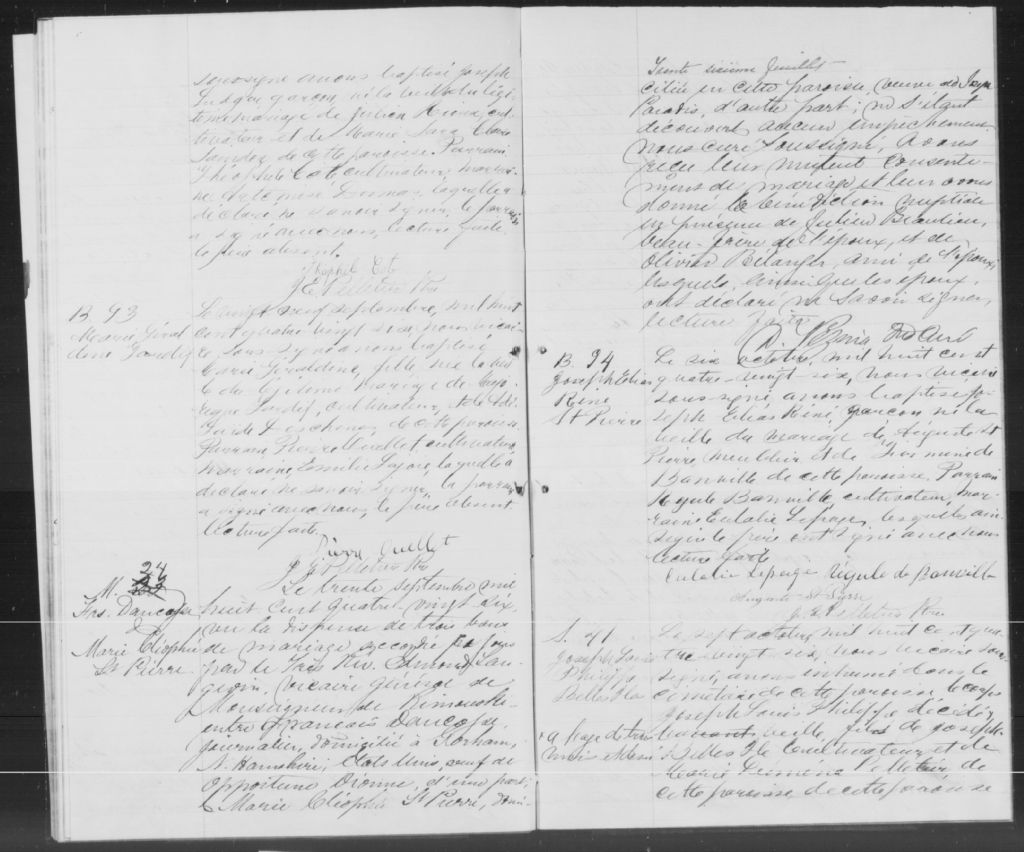 soussigné avons baptisé Joseph
né la veille du légi-
time mariage de Julien
et de Marie
de cette paroisse. Parrain
Théophile Coté cultivateur, marrai-
ne laquelle a
déclaré ne savoir signer, le parrain
a signé avec nous, lecture faite.
le père absent.
Theophil Cote
J. E. Pelletier Ptre
B. 93
Marie Géral
dine
Le vingt neuf septembre, mil huit
cent quatre vingt six, nous vicai-
re, sous-signé avons baptisé
Marie Géraldine, fille née la veil
le du légitime mariage de
cultivateur, et de
de cette paroisse.
Parrain, Pierre Ouellet cultivateur
marraine laquelle a
déclaré ne savoir signer, le parrain
a signé avec nous, le père absent
Lecture faite.
Pierre Ouellet
J. E. Pelletier Ptre
M. 24
Frs. Dancose
&
Marie Cléophée
St Pierre
Le trente septembre mil
huit cent quatre-vingt-six,
vu la dispense de trois bans
de mariage accordée
par le Très Rév. Edmond Lan-
gevin, vicaire général de
Monseigneur de Rimouski
entre François Dancose,
journalier, domicilié à Gorham,
N. Hamshire, Etats Unis, veuf de
Opportune Dionne, d'une part;
& Marie Cléophée St Pierre, domi-
Trente sixième feuillet
ciliée en cette paroisse, veuve de Josep
Paradis, d'autre part; ne s'étant
découvert aucun empêchement
nous curé soussigné, avons
reçu leur mutuel consente-
ment de mariage et leur avons
donné la bénédiction nuptiale
en présence de Julien Beaulieu,
beau-frère de l'époux, et de
Olivier Bélanger, ami de l'époux,
lesquels, ainsi que les époux,
ont déclaré ne savoir signer,
lecture faite.
Ptre Curé
B. 94
Joseph Elias
René
St Pierre
Le six octobre, mil huit cent
quatre-vingt-six, nous vicaire
sous-signé, avons baptisé Jo-
seph Elias René, garçon né la
veille du mariage de Auguste St
Pierre, meublier, et de
Banville de cette paroisse. Parrain
Régule Banville, cultivateur, mar-
raine Eulalie Lepage, lesquels ain-
si que le père ont signé avec nous
lecture faite
Eulalie Lepage Régule de Banville
Auguste St Pierre
J. E. Pelletier Ptre
S. 41
Joseph Louis
Philippe
Belles Isles
Le sept octobre, mil huit cent qua-
tre vingt six, nous vicaire sous
signé, avons inhumé dans le
cimetière de cette paroisse le corps
Joseph Louis Philippe, décédé,
veille, fils de Joseph
+ agé de trois
mois et demi
Belles Isle cultivateur et de
Marie Pelletier, de
cette paroisse, de cette paroisse